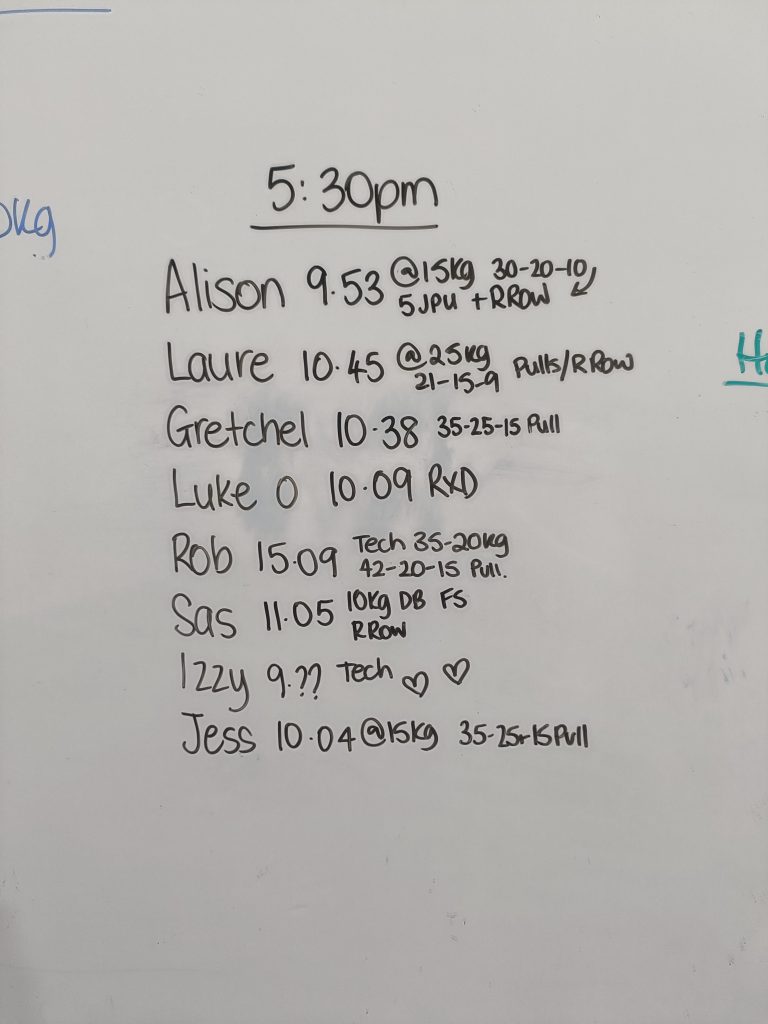 5:30pm
Kg
Alison 9.53 @15kg 30-20-10
5 JPU + RROW
Laure 10.45 @25kg
21-15-9 Pulls/R Row
Gretchel 10.38 35-25-15 Pull
Luke O 10.09 RXD
Rob 15.09 Tech 35-20kg
42-20-15 Pull.
Sas 11.05 10kg DB FS
RROW
Izzy 9.?? Tech ♡ ♡
Jess 10.04 @15kg 35-25-15 Pull